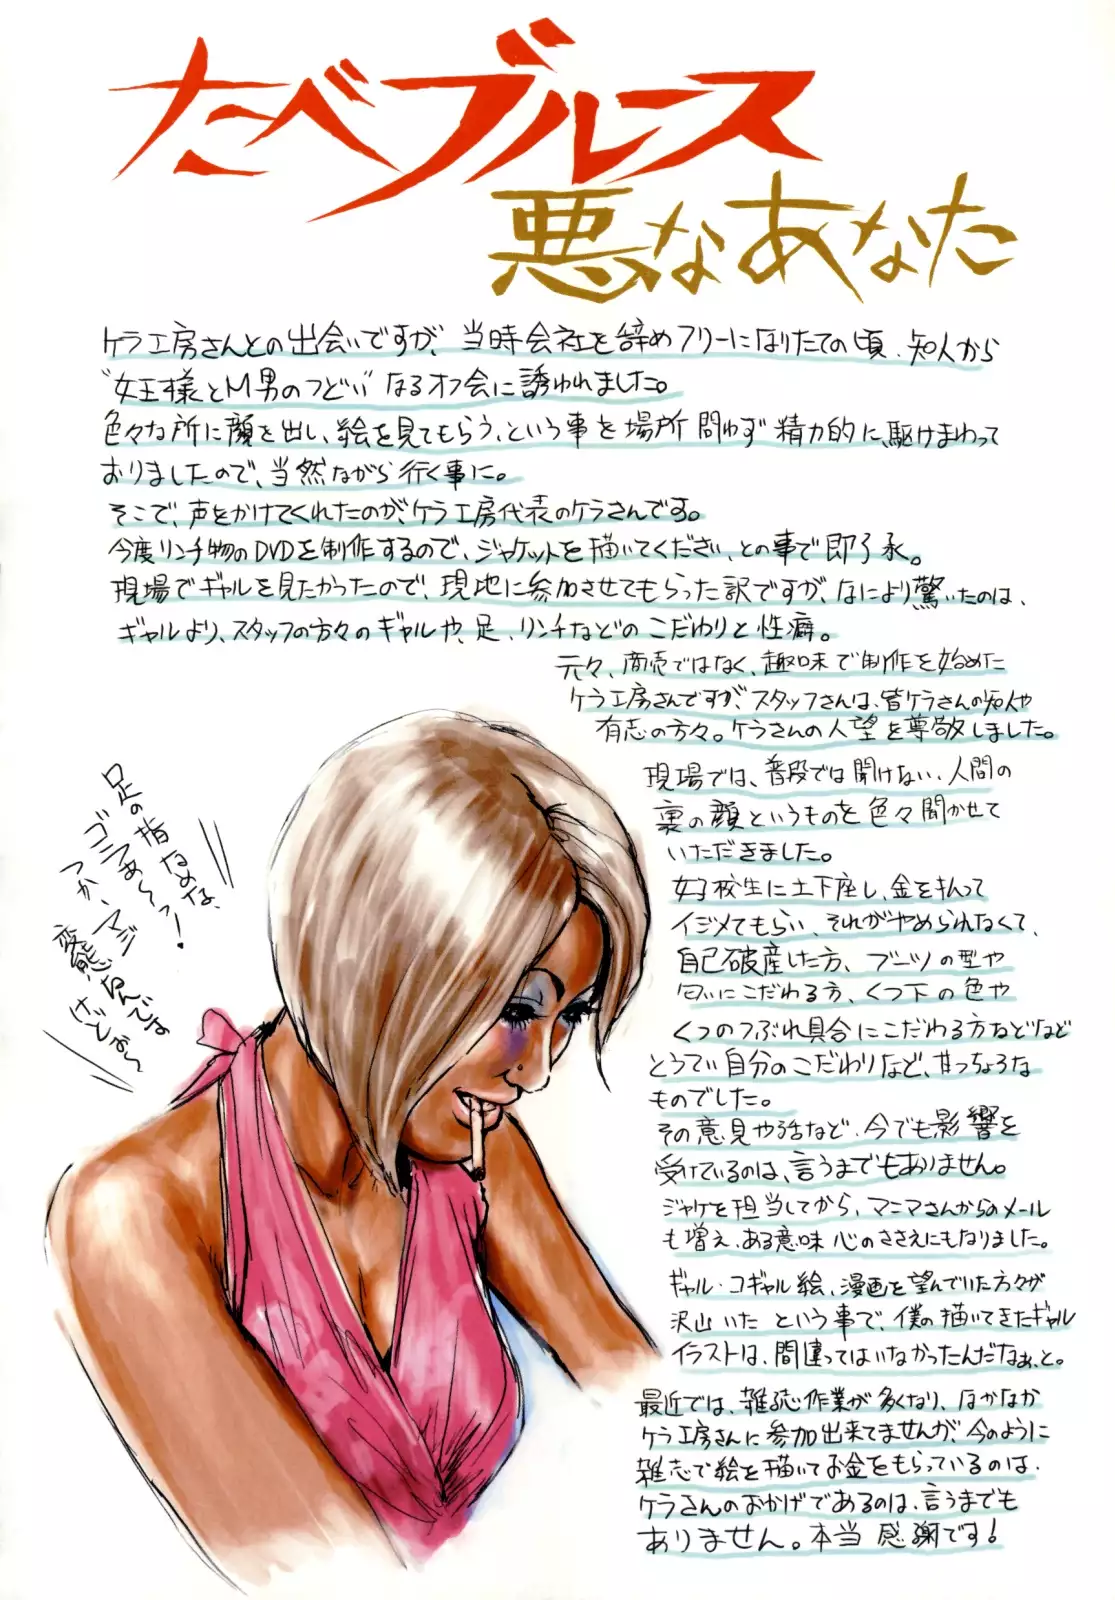 たべブルース
悪なあなた
ケラ工房さんとの出会いですが、当時会社を辞めフリーになりたての頃、知人から
"女王様とM男のつどい"なるオフ会に誘われました。
色々な所に顔を出し、絵を見てもらう、という事を場所問わず精力的に、駆けまわって
おりましたので、当然ながら行く事に。
そこで、声をかけてくれたのが、ケラ工房代表のケラさんです。
今度リンチ物のDVDを制作するので、ジャケットを描いてください、との事で即了承。
現場でギャルを見たかったので、現地に参加させてもらった訳ですが、なにより驚いたのは、
ギャルより、スタッフの方々のギャルや、足、リンチなどのこだわりと性癖。
元々、商売ではなく、趣味で制作を始めた
ケラ工房さんですが、スタッフさんは、皆ケラさんの知人や
有志の方々。ケラさんの人望を尊敬しました。
現場では、普段では聞けない、人間の
裏の顔というものを色々聞かせて
いただきました。
女子校生に土下座し、金を払って
イジメてもらい、それがやめられなくて、
自己破産した方、ブーツの型や
匂いにこだわる方、くつ下の色や
くつのつぶれ具合にこだわる方などなど
とうてい自分のこだわりなど、甘っちょろな
ものでした。
その意見や話など、今でも影響を
受けているのは、言うまでもありません。
ジャケを担当してから、マニマさんからのメール
も増え、ある意味心のささえにもなりました。
ギャル・コギャル絵、漫画を望んでいた方々が
沢山いたという事で、僕の描いてきたギャル
イラストは、間違ってはいなかったんだなぁ、と。
最近では、雑誌作業が多くなり、なかなか
ケラ工房さんに参加出来てませんが、今のように
雑志で絵を描いてお金をもらっているのは、
ケラさんのおかげであるのは、言うまでも
ありません。本当感謝です!
足の指なめな、
ゴラァあ〜っ!
つか、マジ
変態なんですけどぉ〜